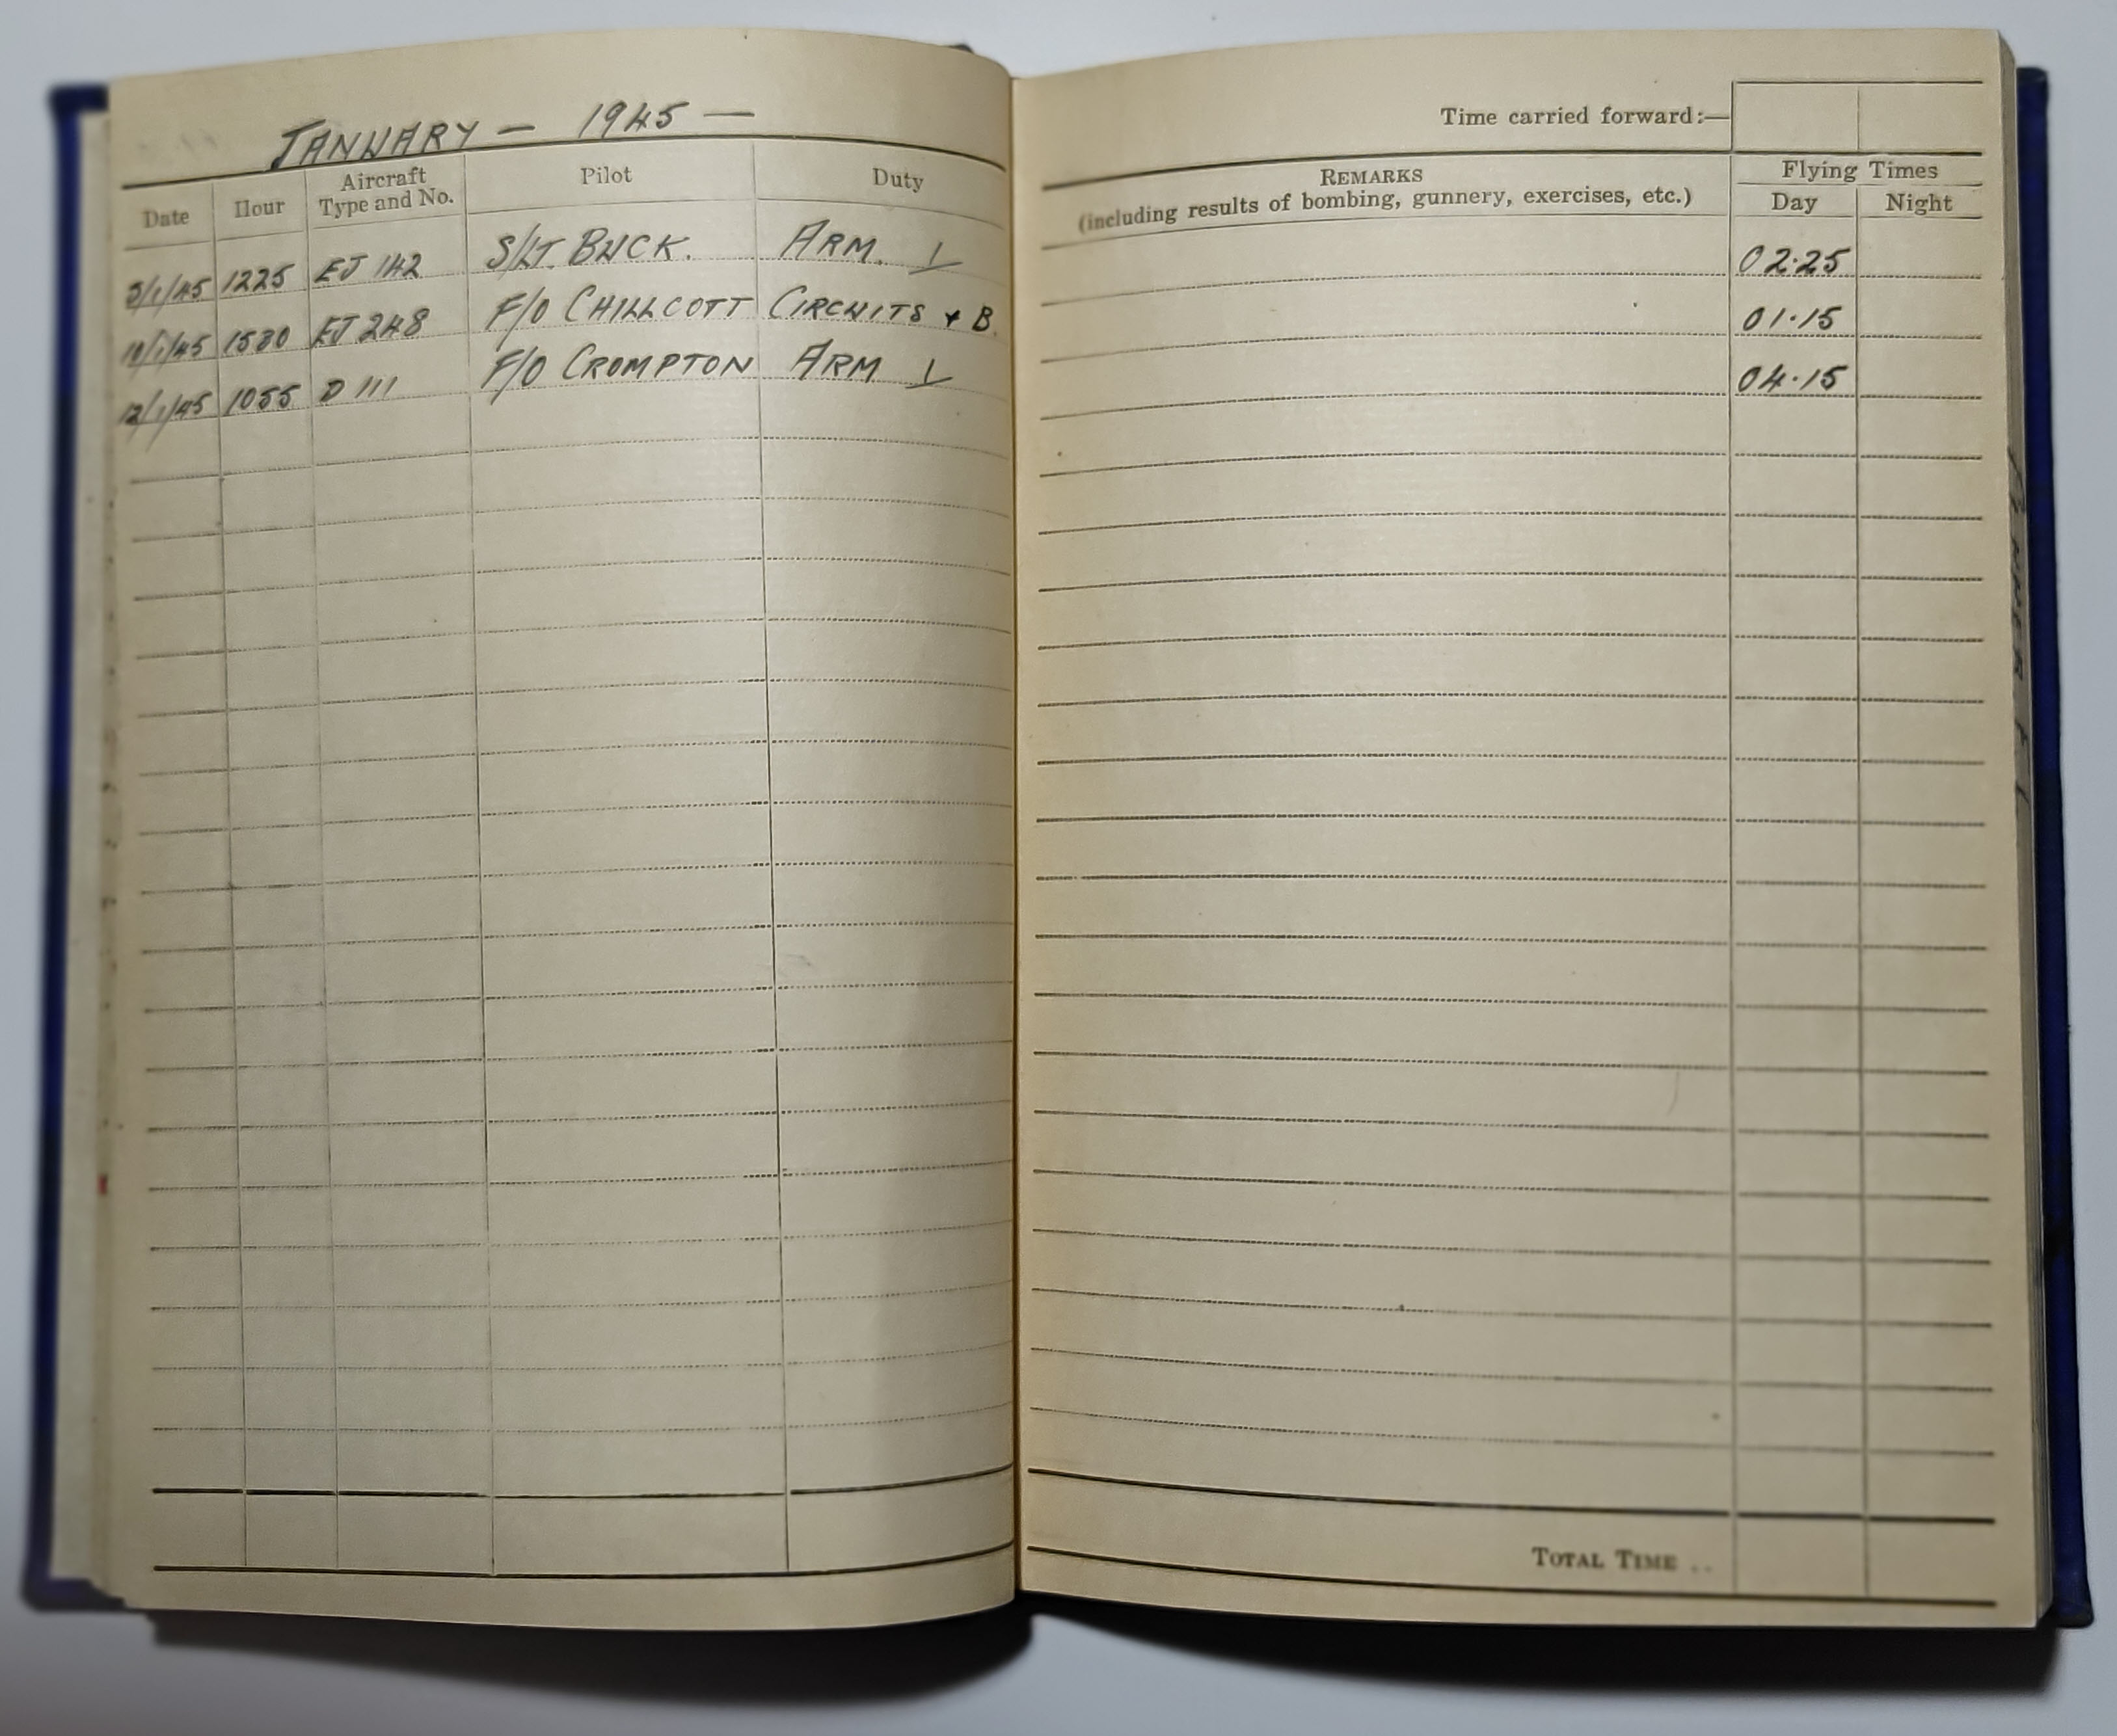 JANUARY — 1945 —
Date Hour Aircraft Type and No. Pilot Duty
5/1/45 1225 EJ 142 S/LT. BUCK. ARM. 1
10/1/45 1530 EJ 248 F/O CHILLCOTT CIRCUITS + B.
12/1/45 1055 D 111 F/O CROMPTON ARM 1
Time carried forward:—
REMARKS
(including results of bombing, gunnery, exercises, etc.)
Flying Times
Day Night
02·25
01·15
04·15
TOTAL TIME ..